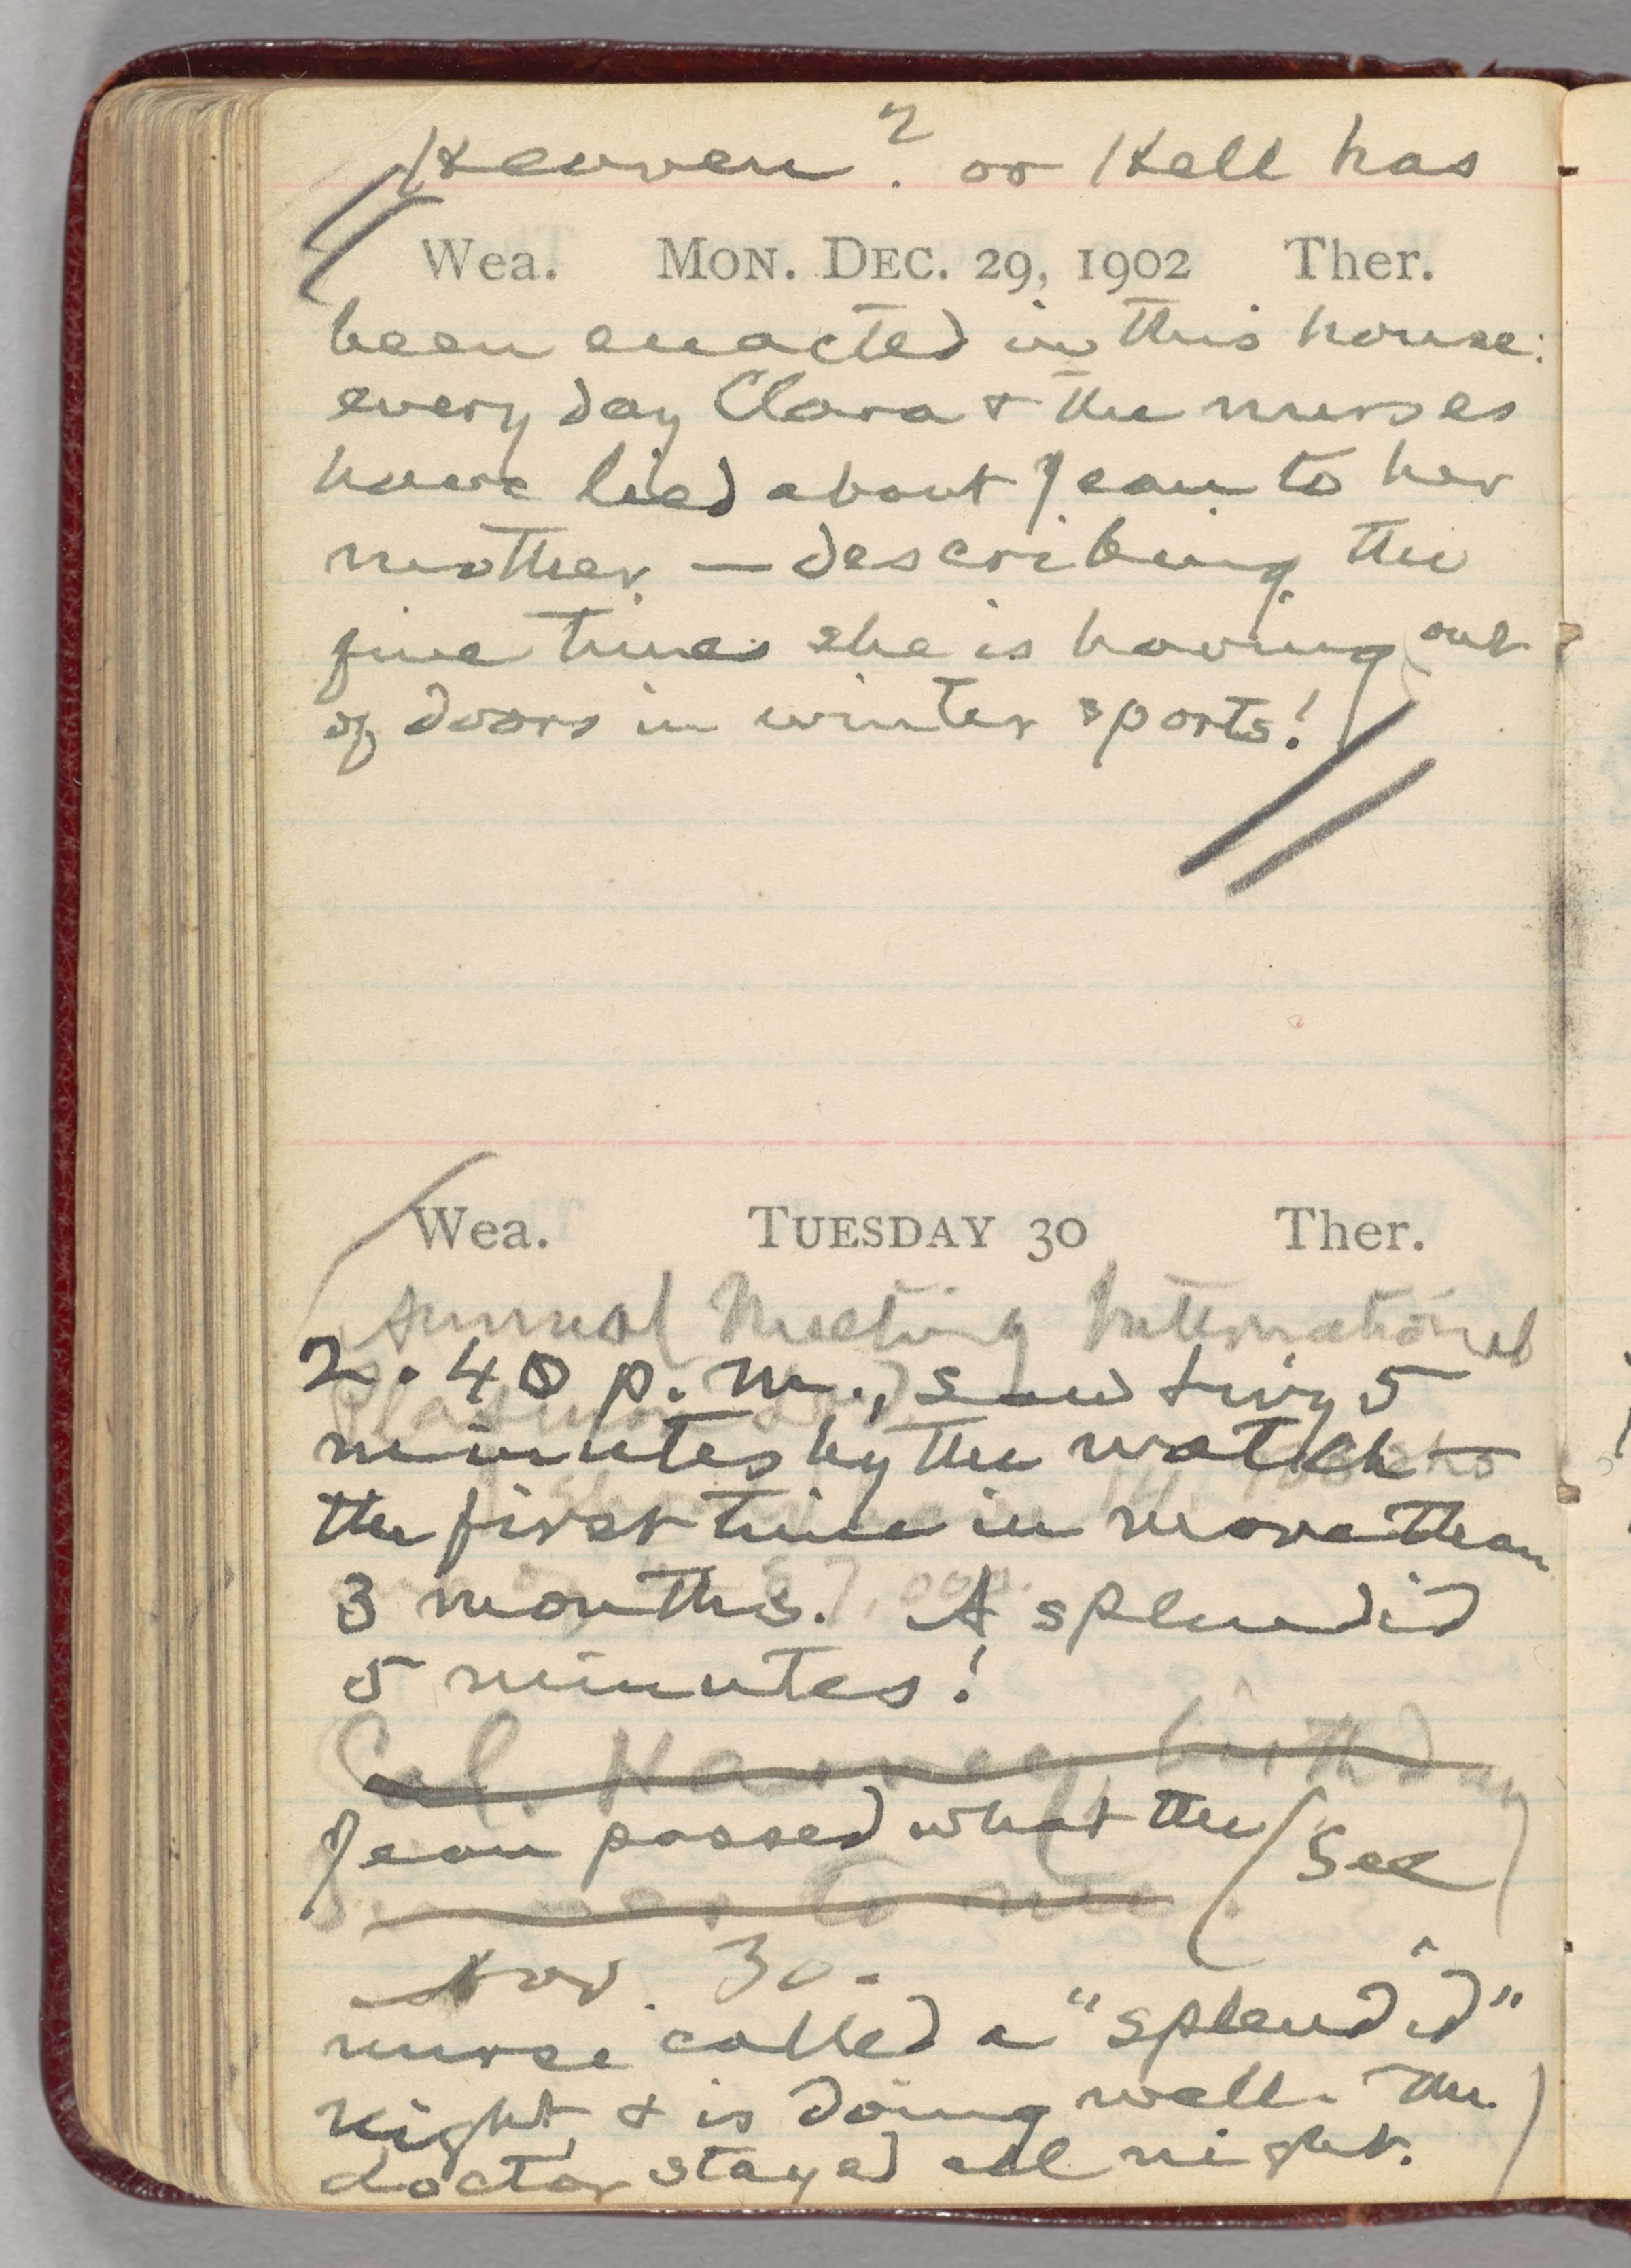 Heaven? or Hell has
Wea. MON. DEC. 29, 1902 Ther.
been enacted in this house:
every day Clara & the nurses
have lied about Jean to her
mother — describing the
fine times she is having out
of doors in winter sports!
Wea. TUESDAY 30 Ther.
Annual Meeting International
2.40 p.m., saw Livy 5
minutes by the watch—
the first time in more than
3 months. A splendid
5 minutes!
Col. Harvey birthday
Jean passed what the (See
dinner to me
Nov. 30.
nurse called a "splendid"
night & is doing well. The
doctor stayed all night.